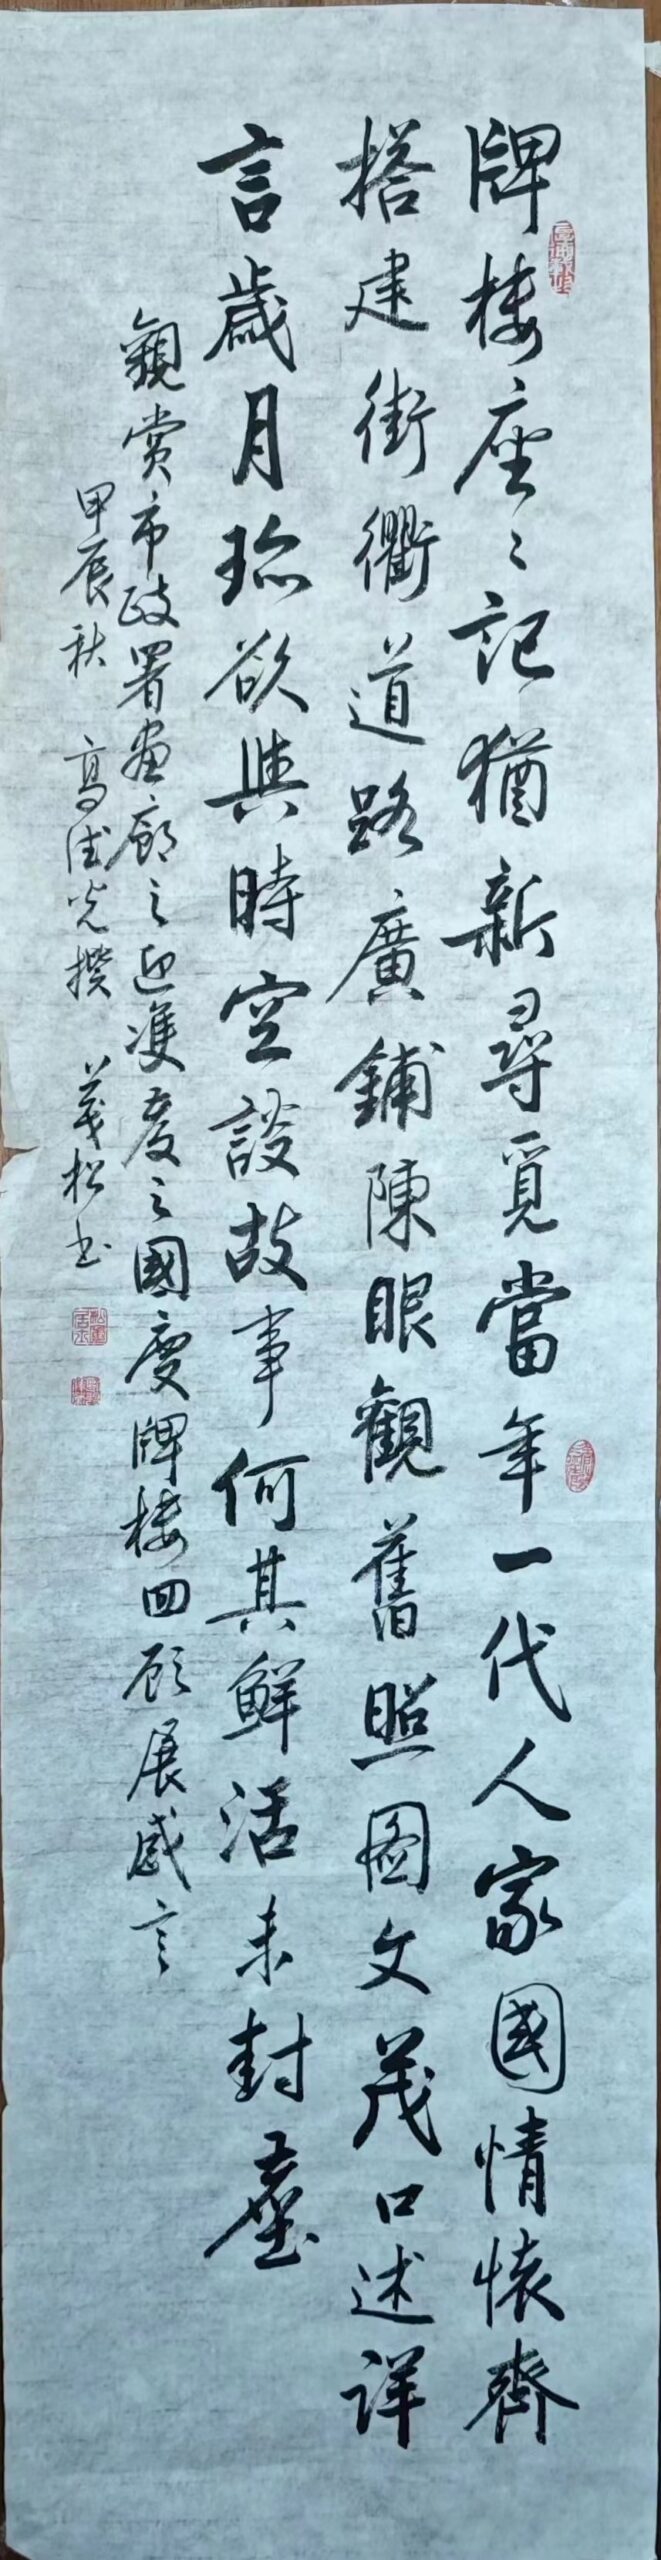 牌樓座々記猶新尋覓當年一代人家國情懷齊
搭建街衢道路廣鋪陳眼觀舊照圖文茂口述詳
言歲月珍欲與時空談故事何其鮮活未封塵
觀賞市政署畫廊之迎雙慶之國慶牌樓回顧展感言
甲辰秋 高德光撰 義松书